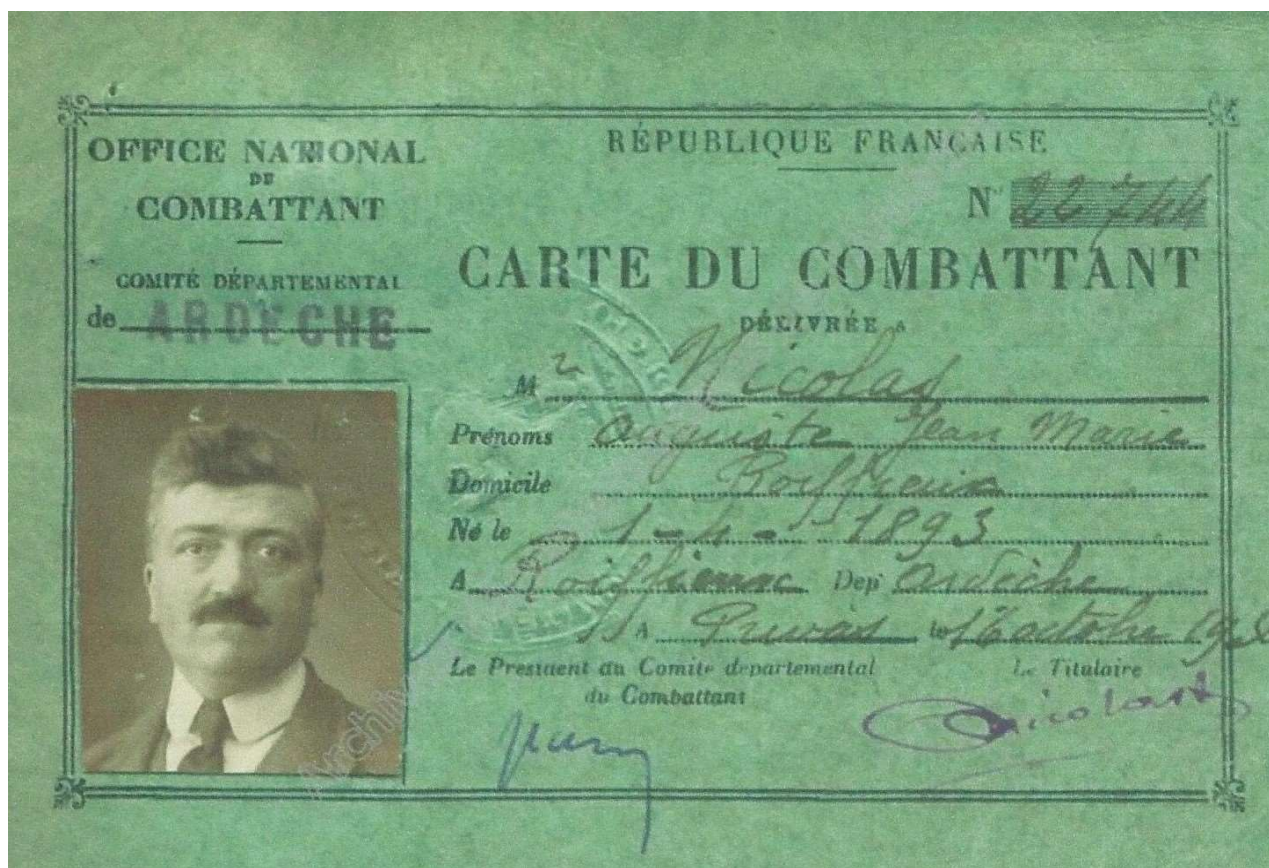 OFFICE NATIONAL
DU
COMBATTANT
COMITÉ DÉPARTEMENTAL
de ARDECHE
RÉPUBLIQUE FRANÇAISE
N° 22744
CARTE DU COMBATTANT
DÉLIVRÉE A
Mr Nicolas
Prénoms Auguste Jean Marie
Domicile Roiffieux
Né le 1-4-1893
A Roiffieux Dep' Ardèche
A Privas le octobre
Le President du Comité departemental
du Combattant
Le Titulaire
Nicolas
Archiv